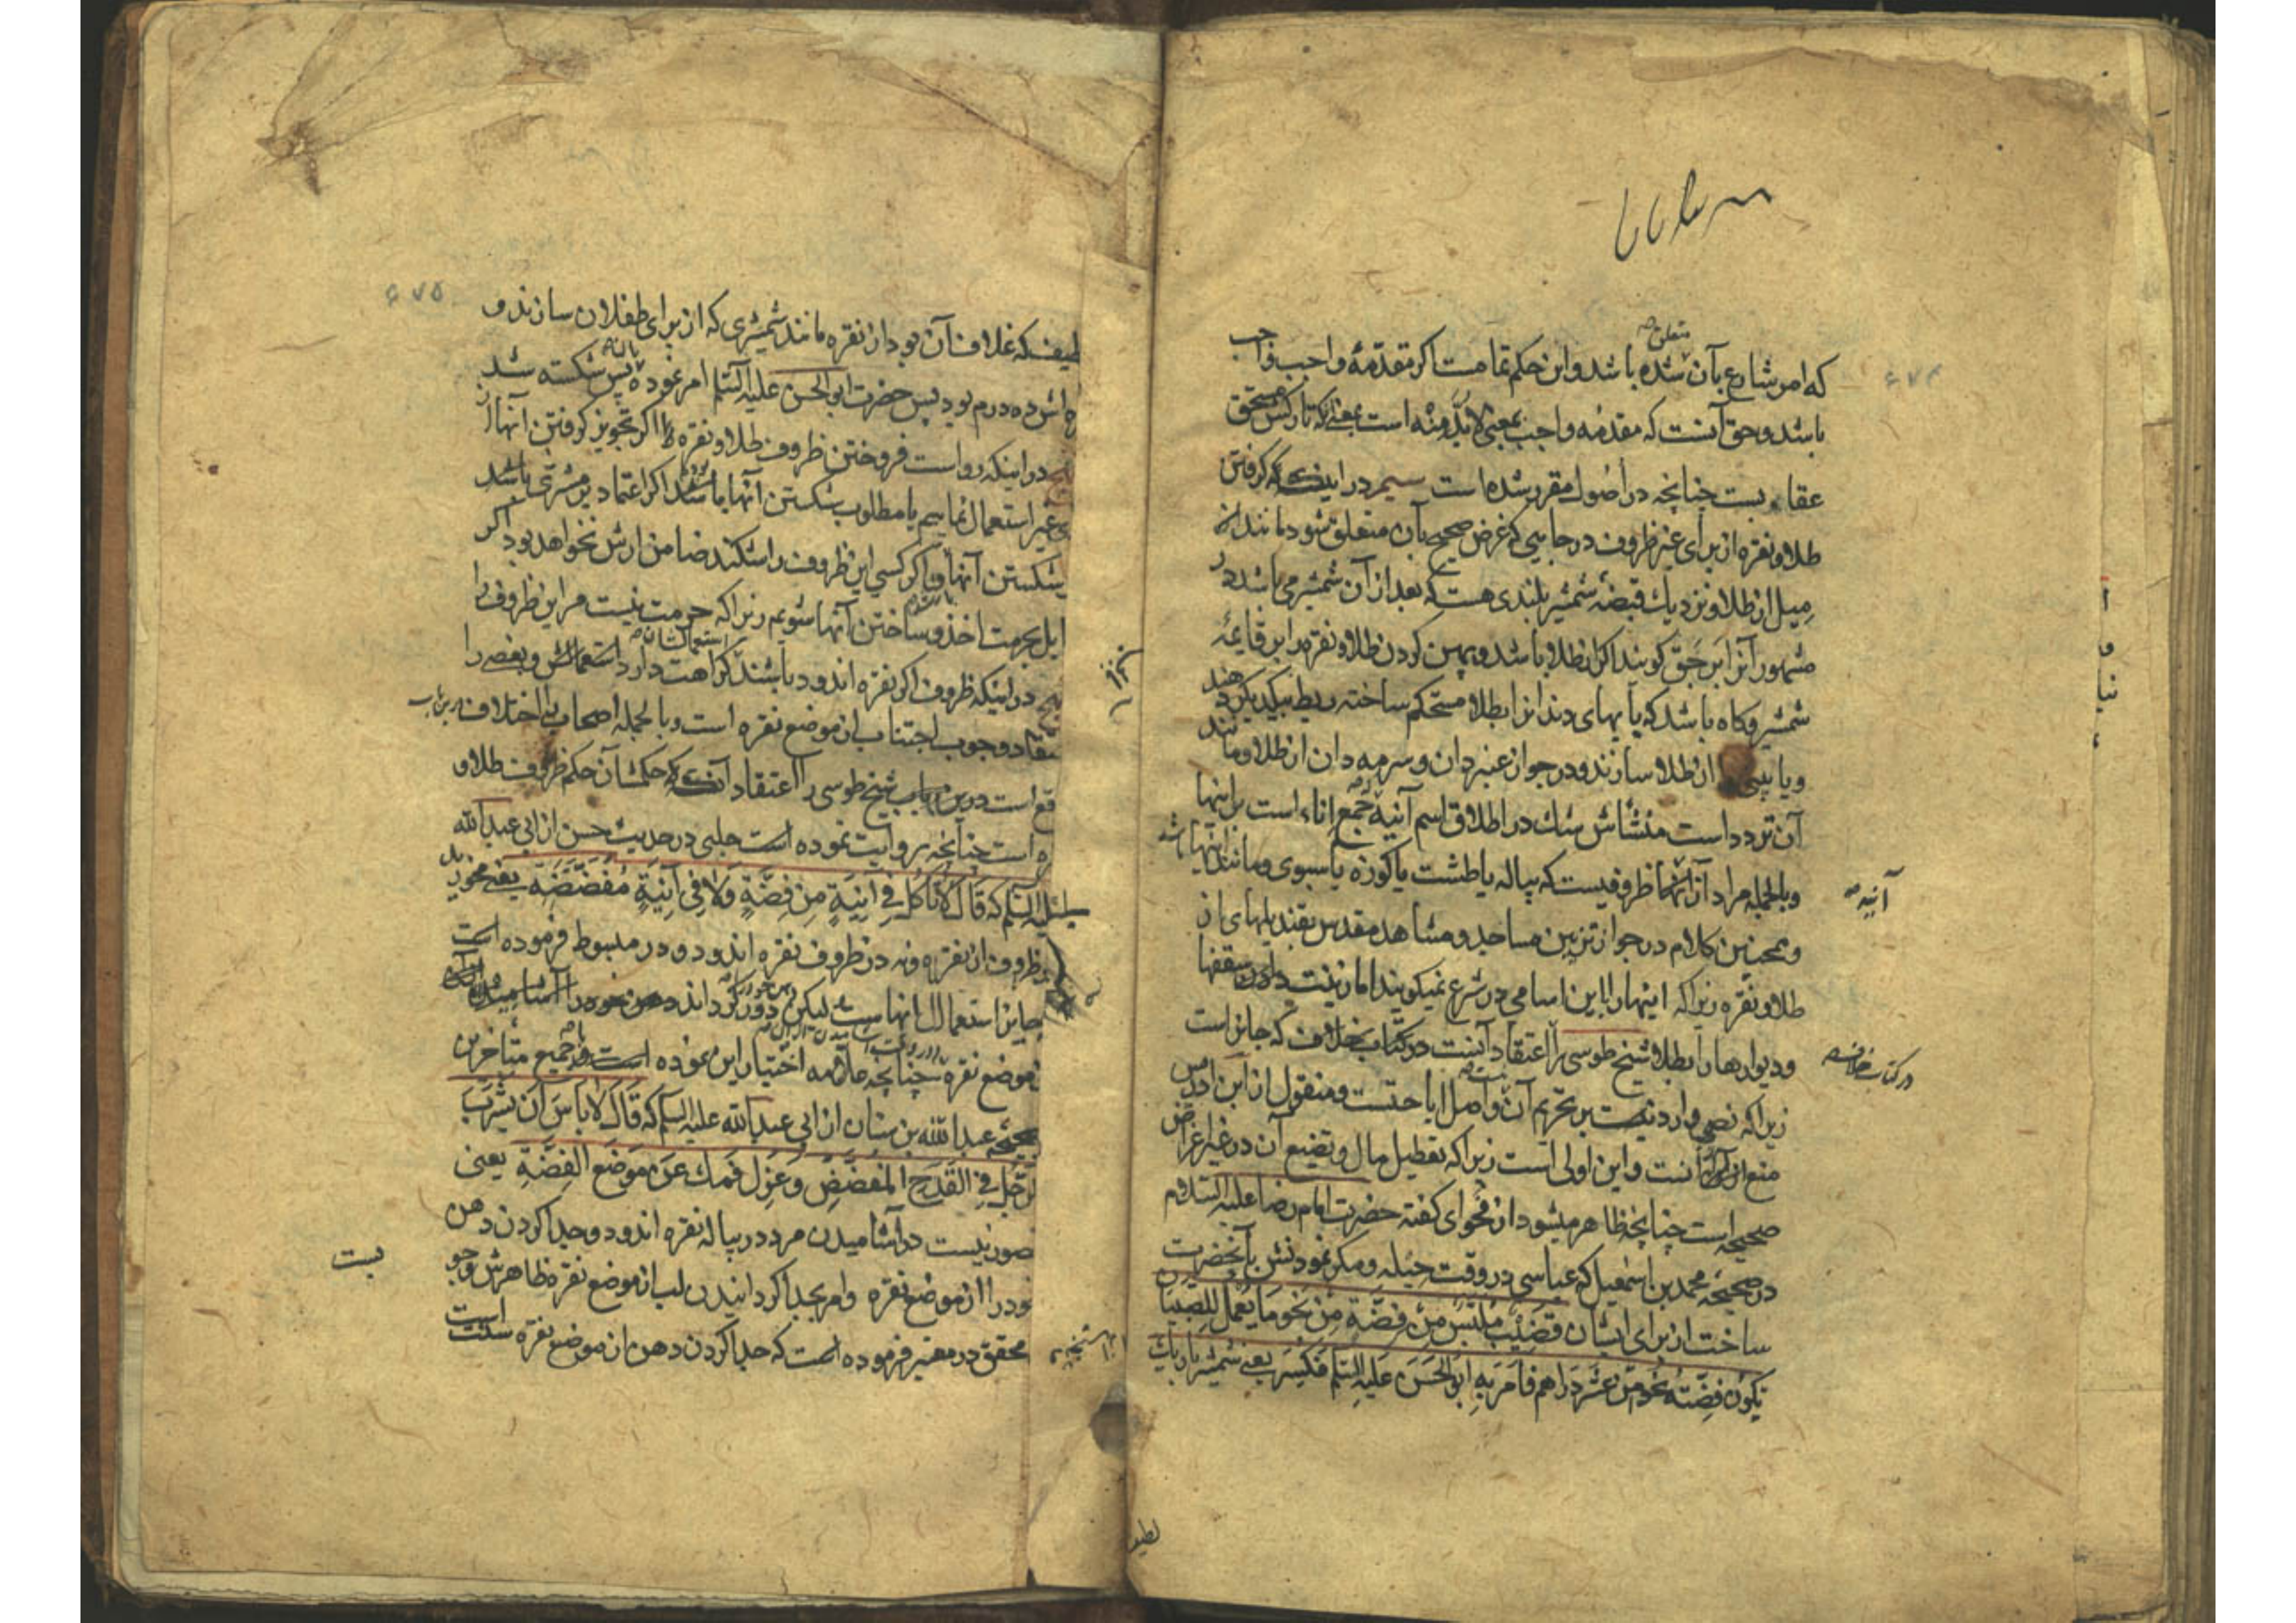 که امر شارع بآن متعلق شده باشد و این حکم تمامست اگر مقدمهٔ واجب واجب
باشد و حق آنست که مقدمه واجب بمعنی لابد منه است بمعنی که تارکش مستحق
عقاب نیست چنانچه در اصول مقرر شده است سیم در اینکه گرفتن
طلا و نقره از برای غیر ظروف در جایی که غرض صحیح بآن متعلق شود مانند
میل از طلا و نزدیک قبضه شمشیر بلندی هست که بعد از آن شمشیر می باشد
مشهور آنرا گویند اگر از طلا باشد و پهن کردن طلا و نقره را بر قایمه
شمشیر و کاه باشد که پایهای دندانرا بطلا مستحکم ساخته ربط بیکدیگر دهند
و یا بینی از طلا سازند و در جواز عنبردان و سرمه دان از طلا و مانند
آن تردد است منشأش شک در اطلاق اسم آنیه که جمع اناء است بر اینها
و بالجمله مراد از آنیه ظروفیست که پیاله یا طشت یا کوزه یا سبوی و مانند اینها باشد
و همچنین کلام در جواز تزیین مساجد و مشاهد مقدس بقندیلهای از
طلا و نقره زیرا که اینهارا این اسامی در شرع نمیگویند اما زینت دادن سقفها
و دیوارها را بطلا شیخ طوسی را اعتقاد آنست در کتاب خلاف که جایز است
زیرا که نصی وارد نیست بر تحریم آن و اصل اباحتست و منقول از ابن ادریس
منع از آنست و این اولی است زیرا که تعطیل مال و تضیع آن در غیر اغراض
صحیحه است چنانچه ظاهر میشود از فحوای گفته حضرت امام رضا علیه السلام
در صحیحه محمد بن اسمعیل که عباسی در وقت حیله و مکر نمودنش بآنحضرت
ساخت از برای ایشان قضیب ملتبس من فضة من نحو ما یعمل للصبیان
یکون فضته نحو من عشر دراهم فامر به ابو الحسن علیه السلم فکسر یعنی شمشیر باریک
لطیف
آنیه
در کتاب خلاف
۶۷۴
لطیف که غلاف آن بود از نقره مانند شمشیری که از برای طفلان سازند و
اش ده درم بود پس حضرت ابی الحسن علیه السلم امر نموده پس شکسته شد
در اینکه رواست فروختن ظروف طلا و نقره را اگر تجویز گرفتن آنها از
غیر استعمال نماییم یا مطلوب شکستن آنها باشد اگر اعتماد بر مشتری باشد
بشکستن آنها و اگر کسی این ظروف را شکند ضامن ارش نخواهد بود اگر
بحرمت اخذ و ساختن آنها شویم زیرا که حرمت نیست مر این ظروف را
در اینکه ظروف اگر نقره اندود باشند کراهت دارد استعمالش و بعضی را
اعتقاد وجوب اجتناب از موضع نقره است و بالجمله اصحاب را اختلاف
واقع است درین باب شیخ طوسی را اعتقاد آنکه حکمشان حکم ظروف طلا و
است چنانچه روایت نموده است حلبی در حدیث حسن از ابی عبد الله
علیه السلم که قال لا تاکل فی آنیة من فضة ولا فی آنیة مفضضة یعنی مخورید
در ظروف از نقره و نه در ظروف نقره اندود و در مبسوط فرموده است
جایز استعمال آنهاست لیکن دور گرداند
موضع نقره چنانچه علامه اختیار این نموده است و جمیع متأخرین
صحیحه عبد الله بن سنان از ابی عبد الله علیه السلم که قال لا باس ان یشرب
الرجل فی القدح المفضض و عزل فمک عن موضع الفضة یعنی
قصور نیست در آشامیدن مرد در پیاله نقره اندود و جدا کردن دهن
خود را از موضع نقره و امر بجدا گردانیدن لب از موضع نقره ظاهرش وجو
بست
محقق در معتبر فرموده است که جدا کردن دهن از موضع نقره سنت است
۶۷۵